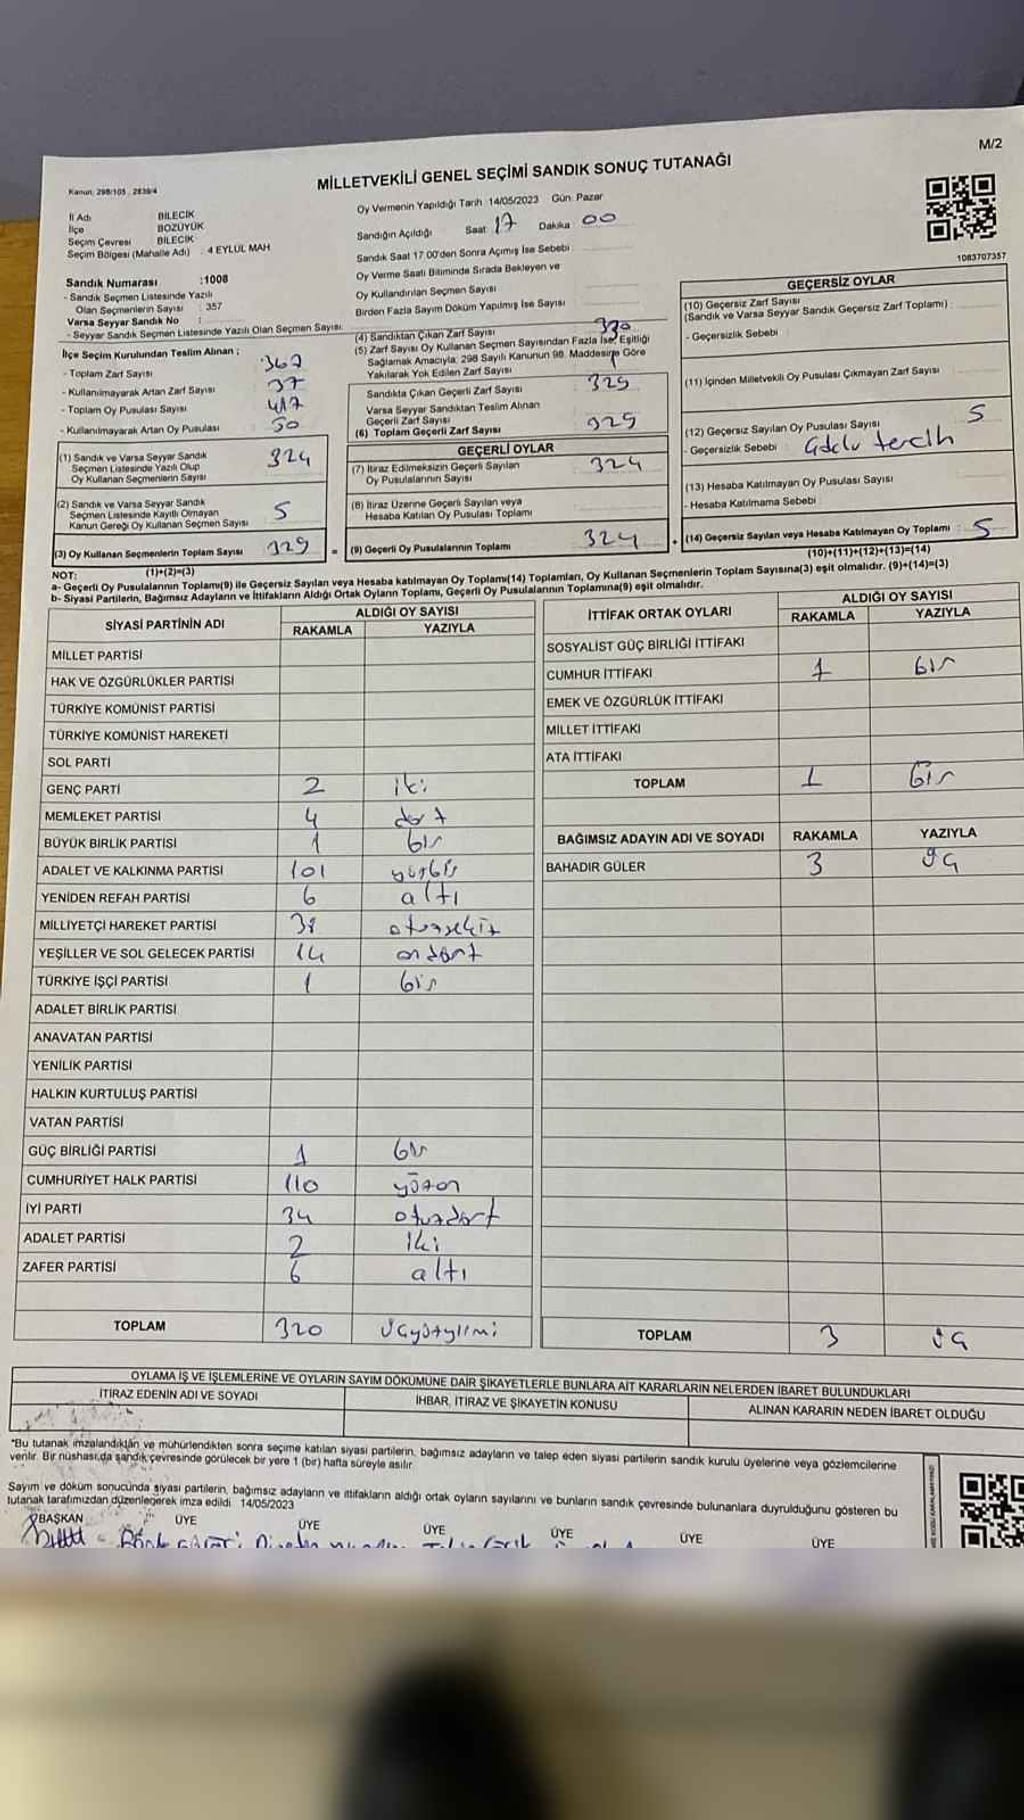 M/2
MİLLETVEKİLİ GENEL SEÇİMİ SANDIK SONUÇ TUTANAĞI
Kanun: 298/105 , 2839/4
İl Adı BİLECİK
İlçe BOZÜYÜK
Seçim Çevresi BİLECİK
Seçim Bölgesi (Mahalle Adı) : 4 EYLÜL MAH
Sandık Numarası :1008
- Sandık Seçmen Listesinde Yazılı
Olan Seçmenlerin Sayısı : 357
Varsa Seyyar Sandık No :
- Seyyar Sandık Seçmen Listesinde Yazılı Olan Seçmen Sayısı:
Oy Vermenin Yapıldığı Tarih :14/05/2023 Gün: Pazar
Sandığın Açıldığı Saat 17 Dakika 00
Sandık Saat 17.00'den Sonra Açımış İse Sebebi
Oy Verme Saati Bitiminde Sırada Bekleyen ve
Oy Kullandırılan Seçmen Sayısı
Birden Fazla Sayım Döküm Yapılmış İse Sayısı
1083707357
İlçe Seçim Kurulundan Teslim Alınan ;
- Toplam Zarf Sayısı 367
- Kullanılmayarak Artan Zarf Sayısı 37
- Toplam Oy Pusulası Sayısı 417
- Kullanılmayarak Artan Oy Pusulası 50
(1) Sandık ve Varsa Seyyar Sandık
Seçmen Listesinde Yazılı Olup
Oy Kullanan Seçmenlerin Sayısı 324
(2) Sandık ve Varsa Seyyar Sandık
Seçmen Listesinde Kayıtlı Olmayan
Kanun Gereği Oy Kullanan Seçmen Sayısı 5
(3) Oy Kullanan Seçmenlerin Toplam Sayısı 329 =
(1)+(2)=(3)
(4) Sandıktan Çıkan Zarf Sayısı 330
(5) Zarf Sayısı Oy Kullanan Seçmen Sayısından Fazla İse, Eşitliği
Sağlamak Amacıyla, 298 Sayılı Kanunun 98. Maddesine Göre
Yakılarak Yok Edilen Zarf Sayısı 1
Sandıkta Çıkan Geçerli Zarf Sayısı 329
Varsa Seyyar Sandıktan Teslim Alınan
Geçerli Zarf Sayısı
(6) Toplam Geçerli Zarf Sayısı 329
GEÇERLİ OYLAR
(7) İtiraz Edilmeksizin Geçerli Sayılan
Oy Pusulalarının Sayısı 324
(8) İtiraz Üzerine Geçerli Sayılan veya
Hesaba Katılan Oy Pusulası Toplamı
(9) Geçerli Oy Pusulalarının Toplamı 324 +
GEÇERSİZ OYLAR
(10) Geçersiz Zarf Sayısı
(Sandık ve Varsa Seyyar Sandık Geçersiz Zarf Toplamı) :
- Geçersizlik Sebebi :
(11) İçinden Milletvekili Oy Pusulası Çıkmayan Zarf Sayısı
(12) Geçersiz Sayılan Oy Pusulası Sayısı 5
- Geçersizlik Sebebi : tercih
(13) Hesaba Katılmayan Oy Pusulası Sayısı
- Hesaba Katılmama Sebebi :
(14) Geçersiz Sayılan veya Hesaba Katılmayan Oy Toplamı : 5
(10)+(11)+(12)+(13)=(14)
NOT:
a- Geçerli Oy Pusulalarının Toplamı(9) ile Geçersiz Sayılan veya Hesaba katılmayan Oy Toplamı(14) Toplamları, Oy Kullanan Seçmenlerin Toplam Sayısına(3) eşit olmalıdır. (9)+(14)=(3)
b- Siyasi Partilerin, Bağımsız Adayların ve İttifakların Aldığı Ortak Oyların Toplamı, Geçerli Oy Pusulalarının Toplamına(9) eşit olmalıdır.
SİYASİ PARTİNİN ADI ALDIĞI OY SAYISI
RAKAMLA YAZIYLA
MİLLET PARTİSİ
HAK VE ÖZGÜRLÜKLER PARTİSİ
TÜRKİYE KOMÜNİST PARTİSİ
TÜRKİYE KOMÜNİST HAREKETİ
SOL PARTİ
GENÇ PARTİ 2 iki
MEMLEKET PARTİSİ 4 dört
BÜYÜK BİRLİK PARTİSİ 1 bir
ADALET VE KALKINMA PARTİSİ 101 yüzbir
YENİDEN REFAH PARTİSİ 6 altı
MİLLİYETÇİ HAREKET PARTİSİ 38 otuzsekiz
YEŞİLLER VE SOL GELECEK PARTİSİ 14 ondört
TÜRKİYE İŞÇİ PARTİSİ 1 bir
ADALET BİRLİK PARTİSİ
ANAVATAN PARTİSİ
YENİLİK PARTİSİ
HALKIN KURTULUŞ PARTİSİ
VATAN PARTİSİ
GÜÇ BİRLİĞİ PARTİSİ 1 bir
CUMHURİYET HALK PARTİSİ 110 yüzon
İYİ PARTİ 34 otuzdört
ADALET PARTİSİ 2 iki
ZAFER PARTİSİ 6 altı
TOPLAM 320 üçyüzyirmi
İTTİFAK ORTAK OYLARI ALDIĞI OY SAYISI
RAKAMLA YAZIYLA
SOSYALİST GÜÇ BİRLİĞİ İTTİFAKI
CUMHUR İTTİFAKI 1 bir
EMEK VE ÖZGÜRLÜK İTTİFAKI
MİLLET İTTİFAKI
ATA İTTİFAKI
TOPLAM 1 bir
BAĞIMSIZ ADAYIN ADI VE SOYADI RAKAMLA YAZIYLA
BAHADIR GÜLER 3 üç
TOPLAM 3 üç
OYLAMA İŞ VE İŞLEMLERİNE VE OYLARIN SAYIM DÖKÜMÜNE DAİR ŞİKAYETLERLE BUNLARA AİT KARARLARIN NELERDEN İBARET BULUNDUKLARI
İTİRAZ EDENİN ADI VE SOYADI İHBAR, İTİRAZ VE ŞİKAYETİN KONUSU ALINAN KARARIN NEDEN İBARET OLDUĞU
*Bu tutanak imzalandıktan ve mühürlendikten sonra seçime katılan siyasi partilerin, bağımsız adayların ve talep eden siyasi partilerin sandık kurulu üyelerine veya gözlemcilerine
verilir. Bir nüshası da sandık çevresinde görülecek bir yere 1 (bir) hafta süreyle asılır.
Sayım ve döküm sonucunda siyasi partilerin, bağımsız adayların ve ittifakların aldığı ortak oyların sayılarını ve bunların sandık çevresinde bulunanlara duyrulduğunu gösteren bu
tutanak tarafımızdan düzenlegerek imza edildi. 14/05/2023
BAŞKAN ÜYE ÜYE ÜYE ÜYE ÜYE ÜYE